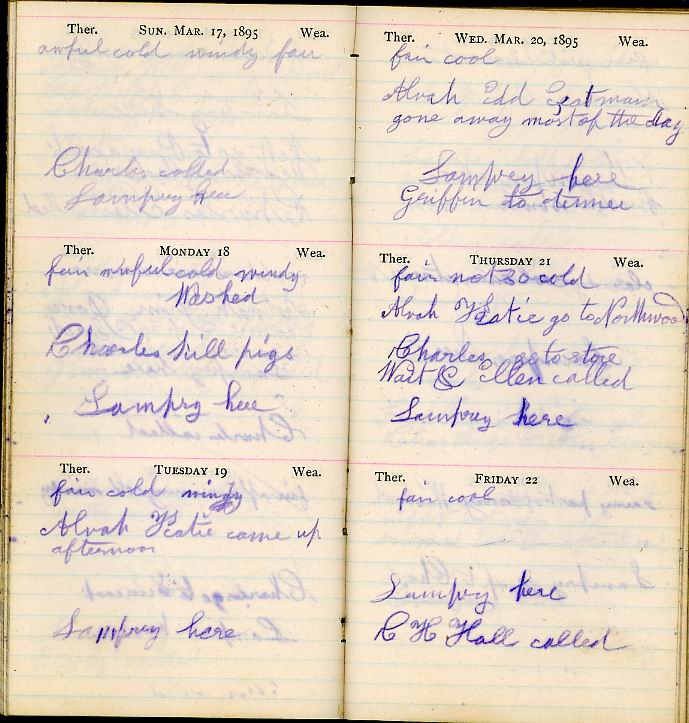 Ther. SUN. MAR. 17, 1895 Wea.
awful cold windy fair
Charles called
Lamprey here
Ther. MONDAY 18 Wea.
fair awful cold windy
Washed
Charles kill pigs
Lamprey here
Ther. TUESDAY 19 Wea.
fair cold windy
Alvah & Katie came up
afternoon
Lamprey here
Ther. WED. MAR. 20, 1895 Wea.
fair cool
Alvah Edd Eastman
gone away most of the day
Lamprey here
Griffin to dinner
Ther. THURSDAY 21 Wea.
fair not so cold
Alvah & Katie go to Northwood
Charles go to store
Wait & Ellen called
Lamprey here
Ther. FRIDAY 22 Wea.
fair cool
Lamprey here
C H Hall called